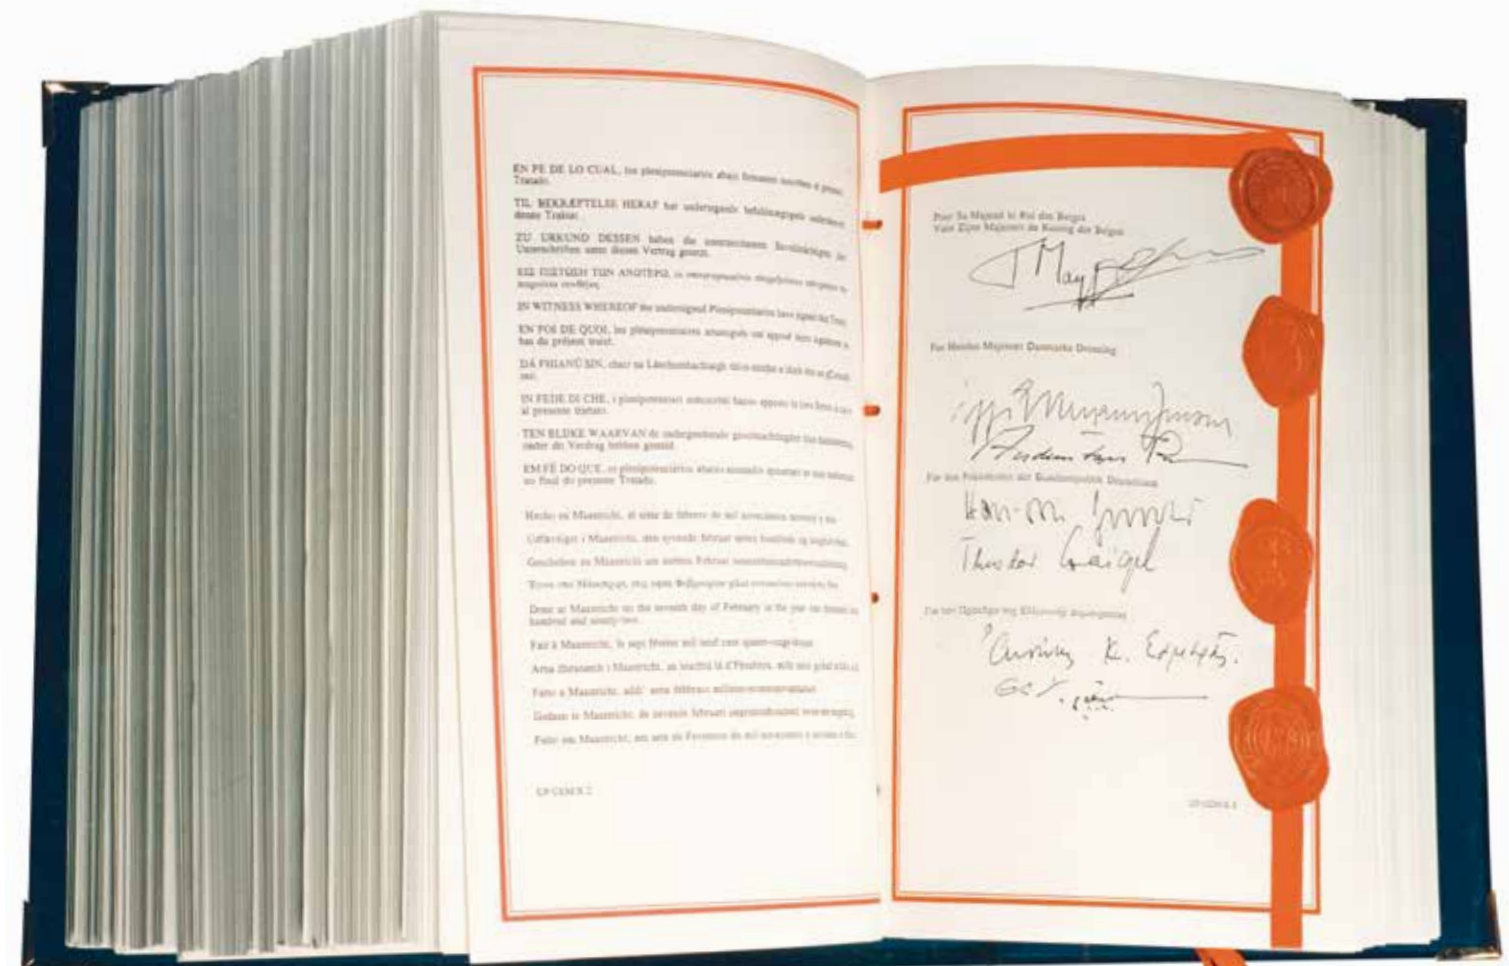 EN FE DE LO CUAL, los plenipotenciarios abajo firmantes suscriben el presente
Tratado.
TIL BEKRÆFTELSE HERAF har undertegnede befuldmægtigede underskrevet
denne Traktat.
ZU URKUND DESSEN haben die unterzeichneten Bevollmächtigten ihre
Unterschriften unter diesen Vertrag gesetzt.
ΕΙΣ ΠΙΣΤΩΣΗ ΤΩΝ ΑΝΩΤΕΡΩ, οι υπογεγραμμένοι πληρεξούσιοι υπέγραψαν την
παρούσα συνθήκη.
IN WITNESS WHEREOF the undersigned Plenipotentiaries have signed this Treaty
EN FOI DE QUOI, les plénipotentiaires soussignés ont apposé leurs signatures au
bas du présent traité.
DÁ FHIANÚ SIN, chuir na Lánchumhachtaigh thíos-sínithe a lámh leis an gConradh
seo.
IN FEDE DI CHE, i plenipotenziari sottoscritti hanno apposto le loro firme in calce
al presente trattato.
TEN BLIJKE WAARVAN de ondergetekende gevolmachtigden hun handtekening
onder dit Verdrag hebben gesteld.
EM FÉ DO QUE, os plenipotenciários abaixo assinados apuseram as suas assinaturas
no final do presente Tratado.
Hecho en Maastricht, el siete de febrero de mil novecientos noventa y dos
Udfærdiget i Maastricht, den syvende februar nitten hundrede og tooghalvfems
Geschehen zu Maastricht am siebten Februar neunzehnhundertzweiundneunzig
Έγινε στο Μάαστριχτ, στις εφτά Φεβρουαρίου χίλια εννιακόσια ενενήντα δύο
Done at Maastricht on the seventh day of February in the year one thousand nine
hundred and ninety-two
Fait à Maastricht, le sept février mil neuf cent quatre-vingt-douze
Arna dhéanamh i Maastricht, an seachtú lá d'Fheabhra, míle naoi gcéad nócha a dó
Fatto a Maastricht, addi' sette febbraio millenovecentonovantadue
Gedaan te Maastricht, de zevende februari negentienhonderd twee-en-negentig
Feito em Maastricht, em sete de Fevereiro de mil novecentos e noventa e dois
Pour Sa Majesté le Roi des Belges
Voor Zijne Majesteit de Koning der Belgen
For Hendes Majestæt Danmarks Dronning
Für den Präsidenten der Bundesrepublik Deutschland
Theodor Waigel
Για τον Πρόεδρο της Ελληνικής Δημοκρατίας